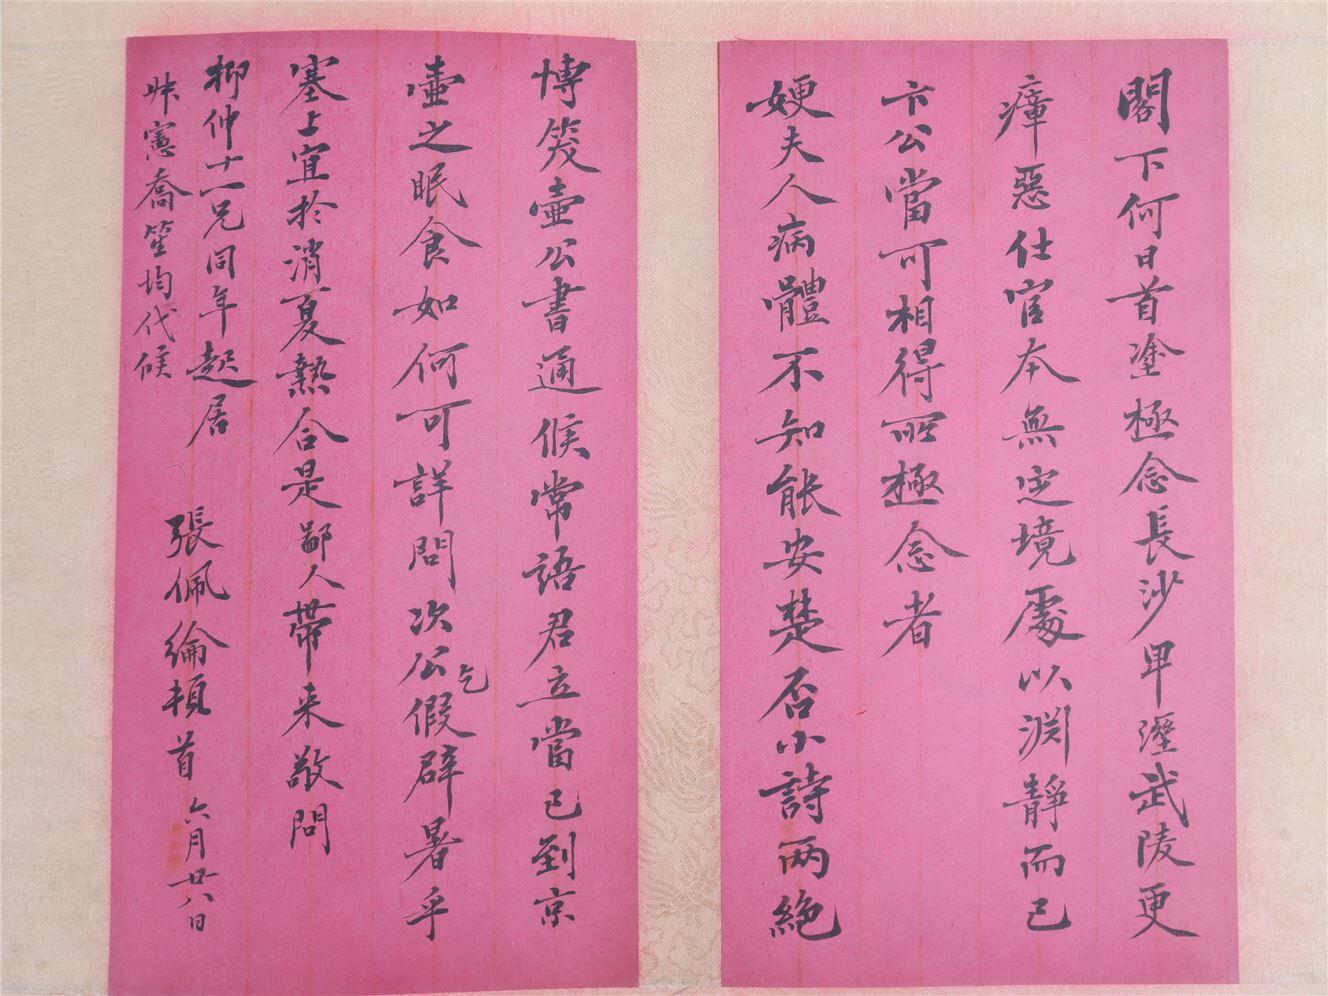 閣下何日首塗極念長沙卑溼武陵更
瘴惡仕宦本無定境處以淵靜而已
卞公當可相得所極念者
㛐夫人病體不知能安楚否小詩兩絕
博筊壷公書通候常語君立當已到京
壷之眠食如何可詳問次公乞假辟暑乎
塞上宜於消夏熱合是鄙人帶來敬問
柳仲十一兄同年起居 張佩綸頓首 六月廿八日
憲喬筀均代候